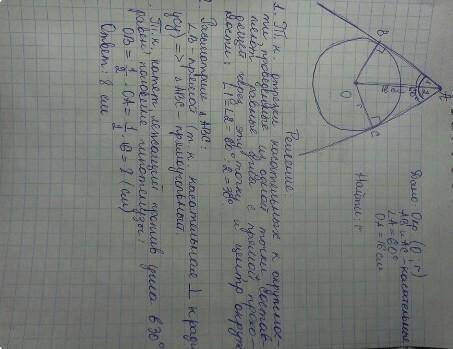 Дано: Окр (O; r)
AB и AC - касательные
∠A = 60°
OA = 16 см
Найти: r
A
B
O
C
16
r
Решение
1. Т.к. отрезки касательных к окружнос-
ти, проведенные из одной точки состав-
ляют равные углы с прямой, прохо-
дящей через эту точку и центр окруж-
ности: ∠1 = ∠2 = 60° : 2 = 30°
Рассмотрим △ABC:
∠B - прямой (т.к. касательная ⊥ к ради-
усу) => △AOC - прямоугольный
Т.к. катет лежащий против угла в 30°
равен половине гипотенузы:
OB = 1/2 · OA = 1/2 · 16 = 8 (см)
Ответ: 8 см